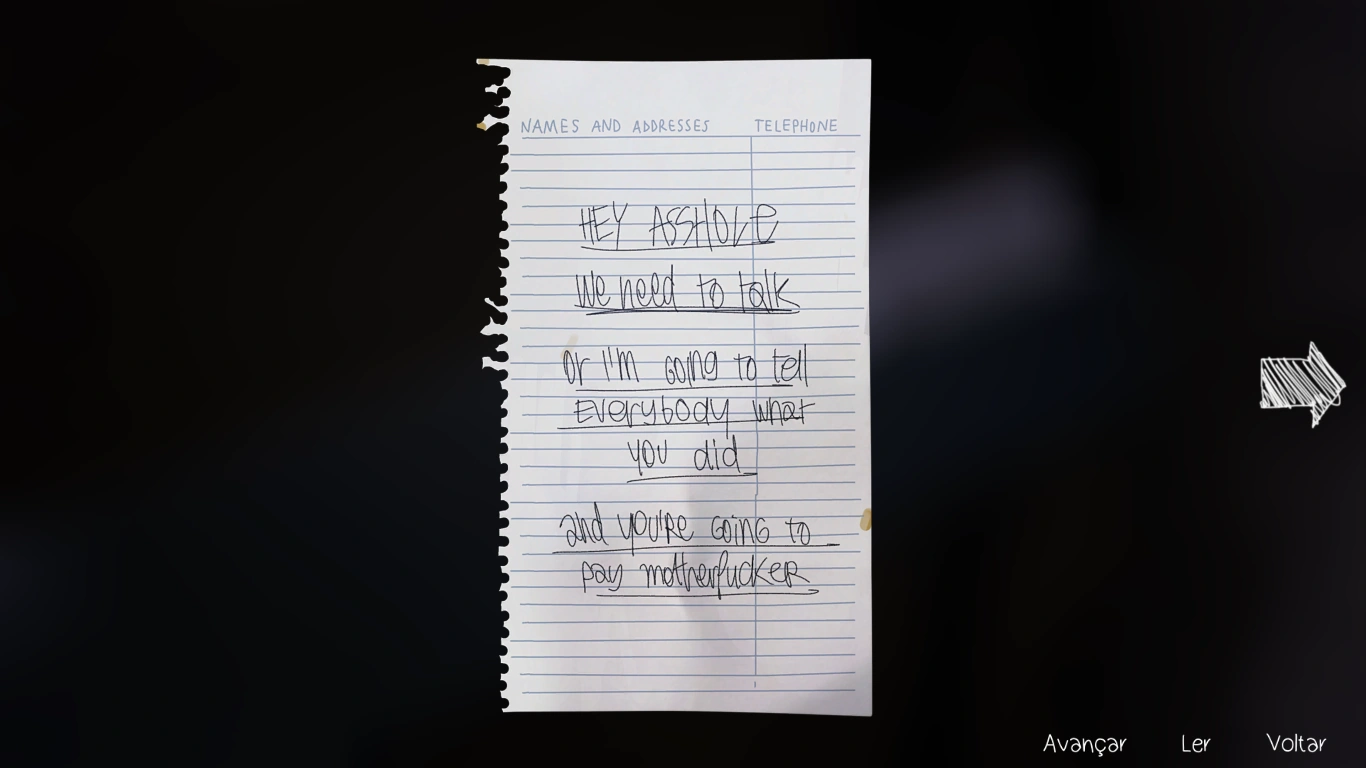 NAMES AND ADDRESSES TELEPHONE
HEY ASSHOLE
We need to talk
Or I'm going to tell
Everybody what
you did
and you're going to
pay motherfucker
Avançar Ler Voltar